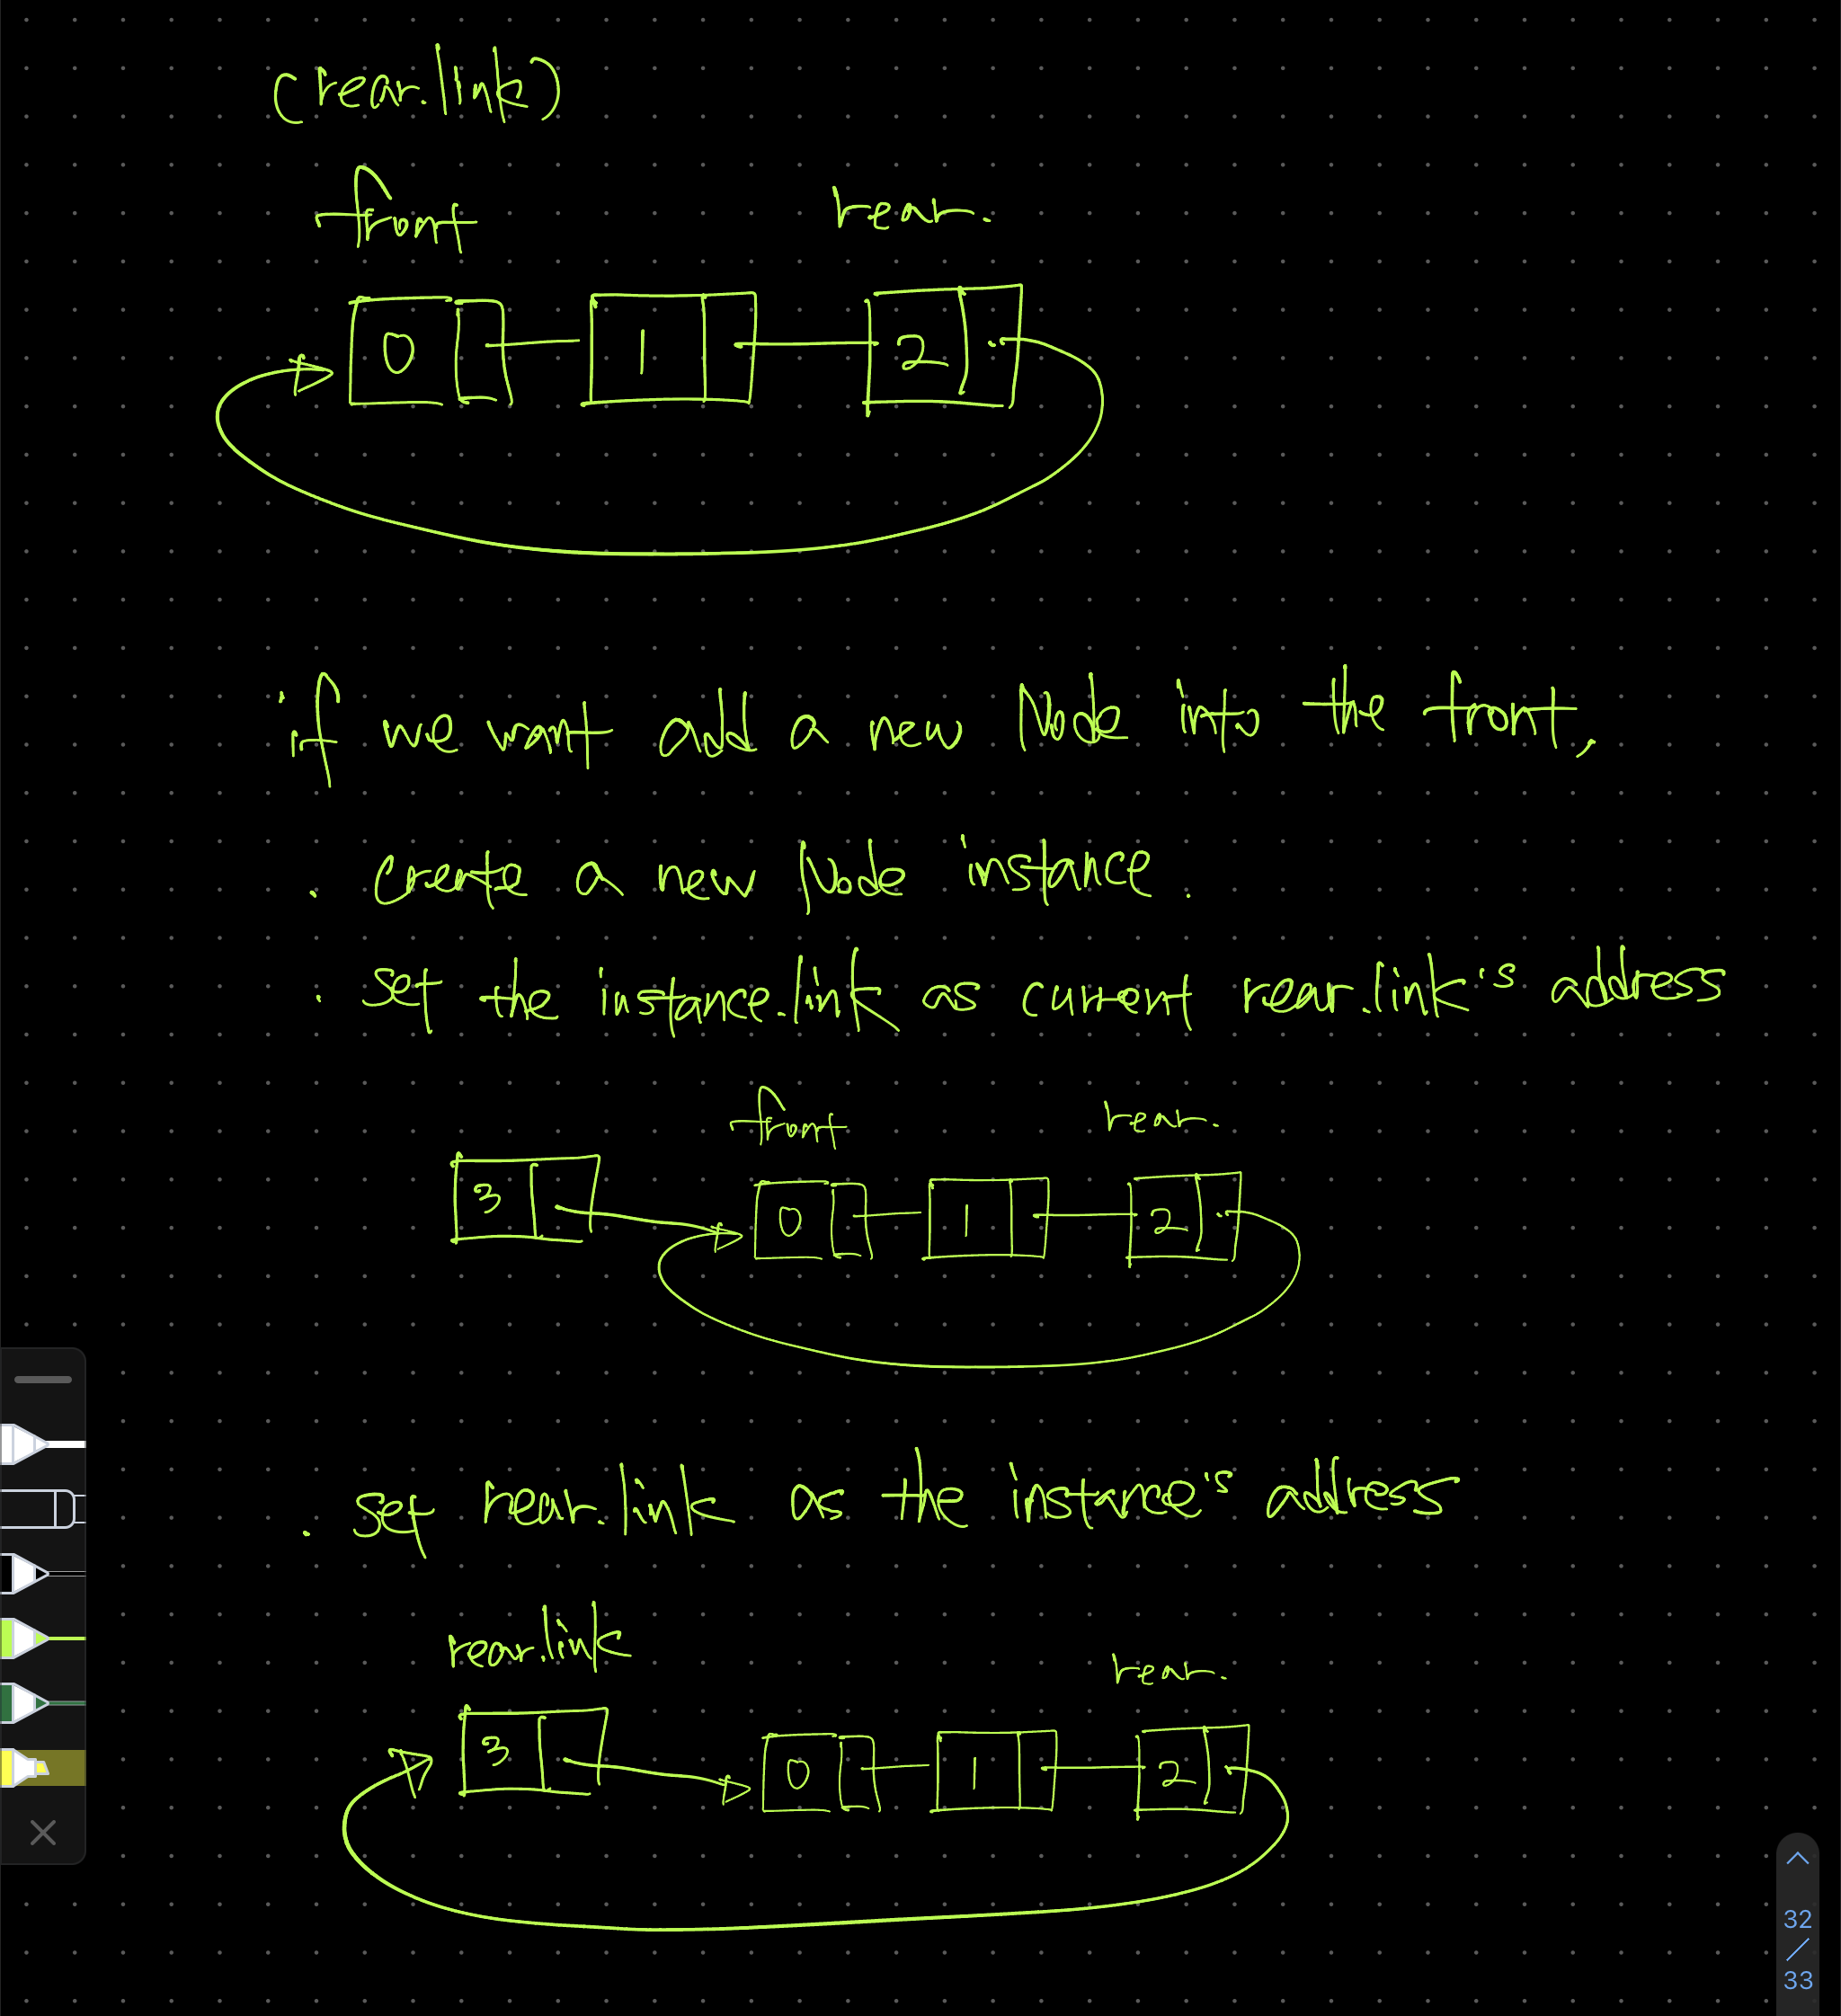 (rear.link)
front rear.
0 1 2
if we want add a new Node into the front,
. create a new Node instance.
. set the instance.link as current rear.link's address
front rear.
3 0 1 2
. set rear.link as the instance's address
rear.link rear.
3 0 1 2
32
/
33